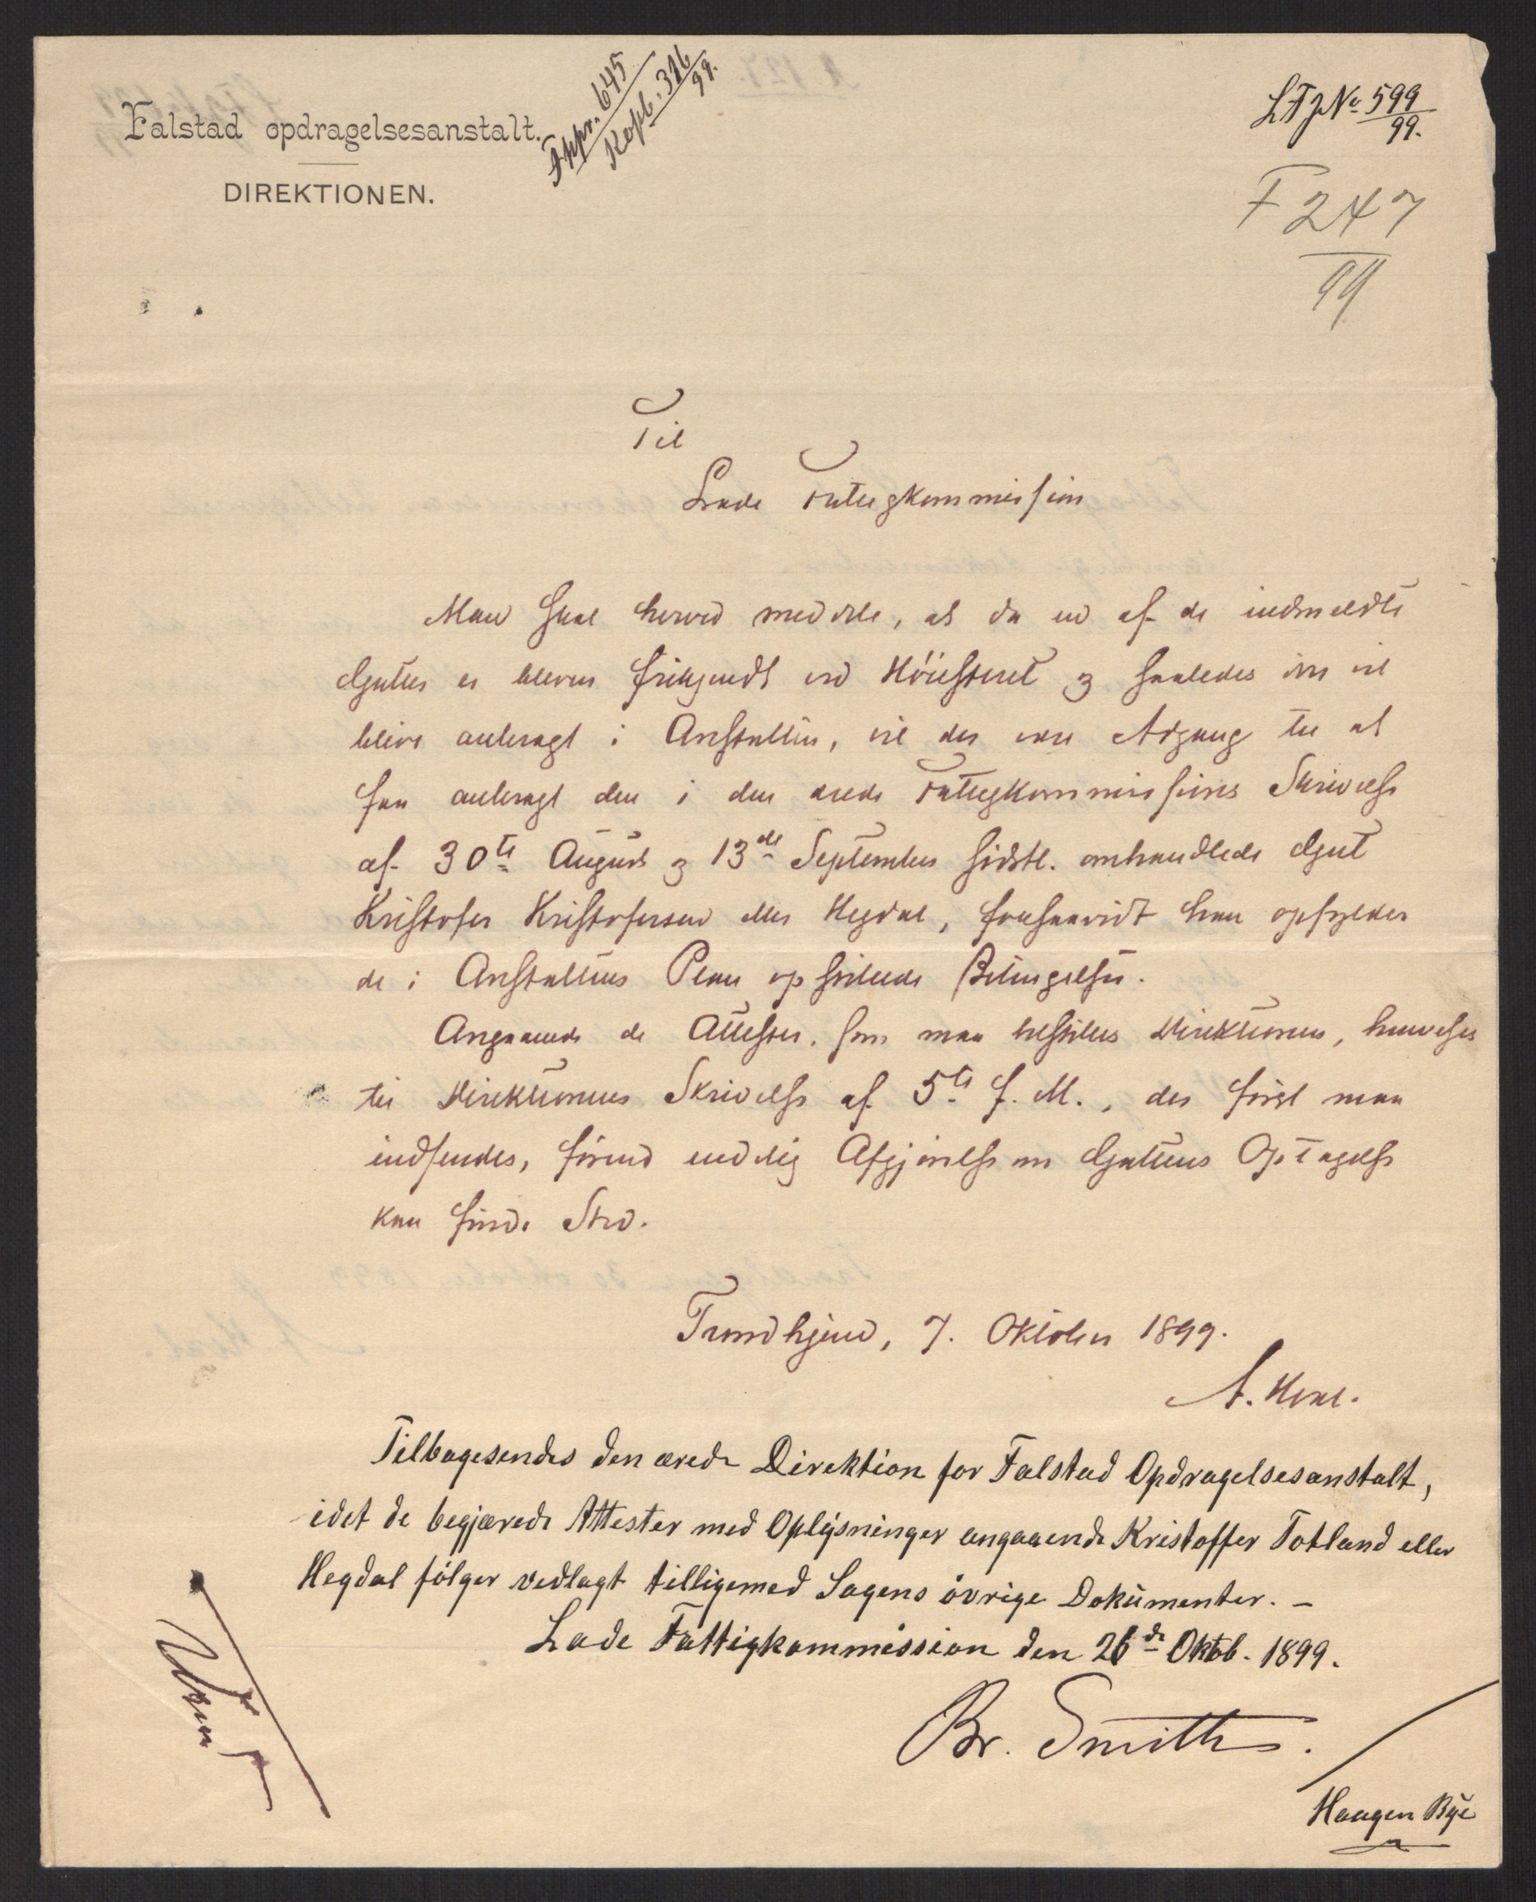 Falstad opdragelsesanstalt.
DIREKTIONEN.
Fppr. 645
Kopb. 316
99.
LFJNo 599
99.
F 247
99
Til
Lade Fattigkommission
Man skal herved meddele, at da en af de indmeldte
Gutter er bleven frikjendt ved Höiesteret og saaledes ikke vil
blive anbragt i Anstalten, vil der være Adgang til at
faa anbragt den i den ærede Fattigkommissions Skrivelse
af 30te August og 13de September sidstl. omhandlede Gut
Kristofer Kristofersen eller Hegdal, forsaavidt han opfylder
de i Anstaltens Plan opstillede Betingelser.
Angaaende de Attester, som maa tilstilles Direktionen, henvises
til Direktionens Skrivelse af 5te f. M., der först maa
indsendes, förend endelig Afgjörelse om Guttens Optagelse
kan finde Sted.
Trondhjem, 7. Oktober 1899.
A. Hoal.
Tilbagesendes den ærede Direktion for Falstad Opdragelsesanstalt,
idet de begjærede Attester med Oplysninger angaaende Kristoffer Totland eller
Hegdal fölger vedlagt tilligemed Sagens övrige Dokumenter. –
Lade Fattigkommission den 26de Oktob. 1899.
Br. Smith.
Haagen Bye
Vend